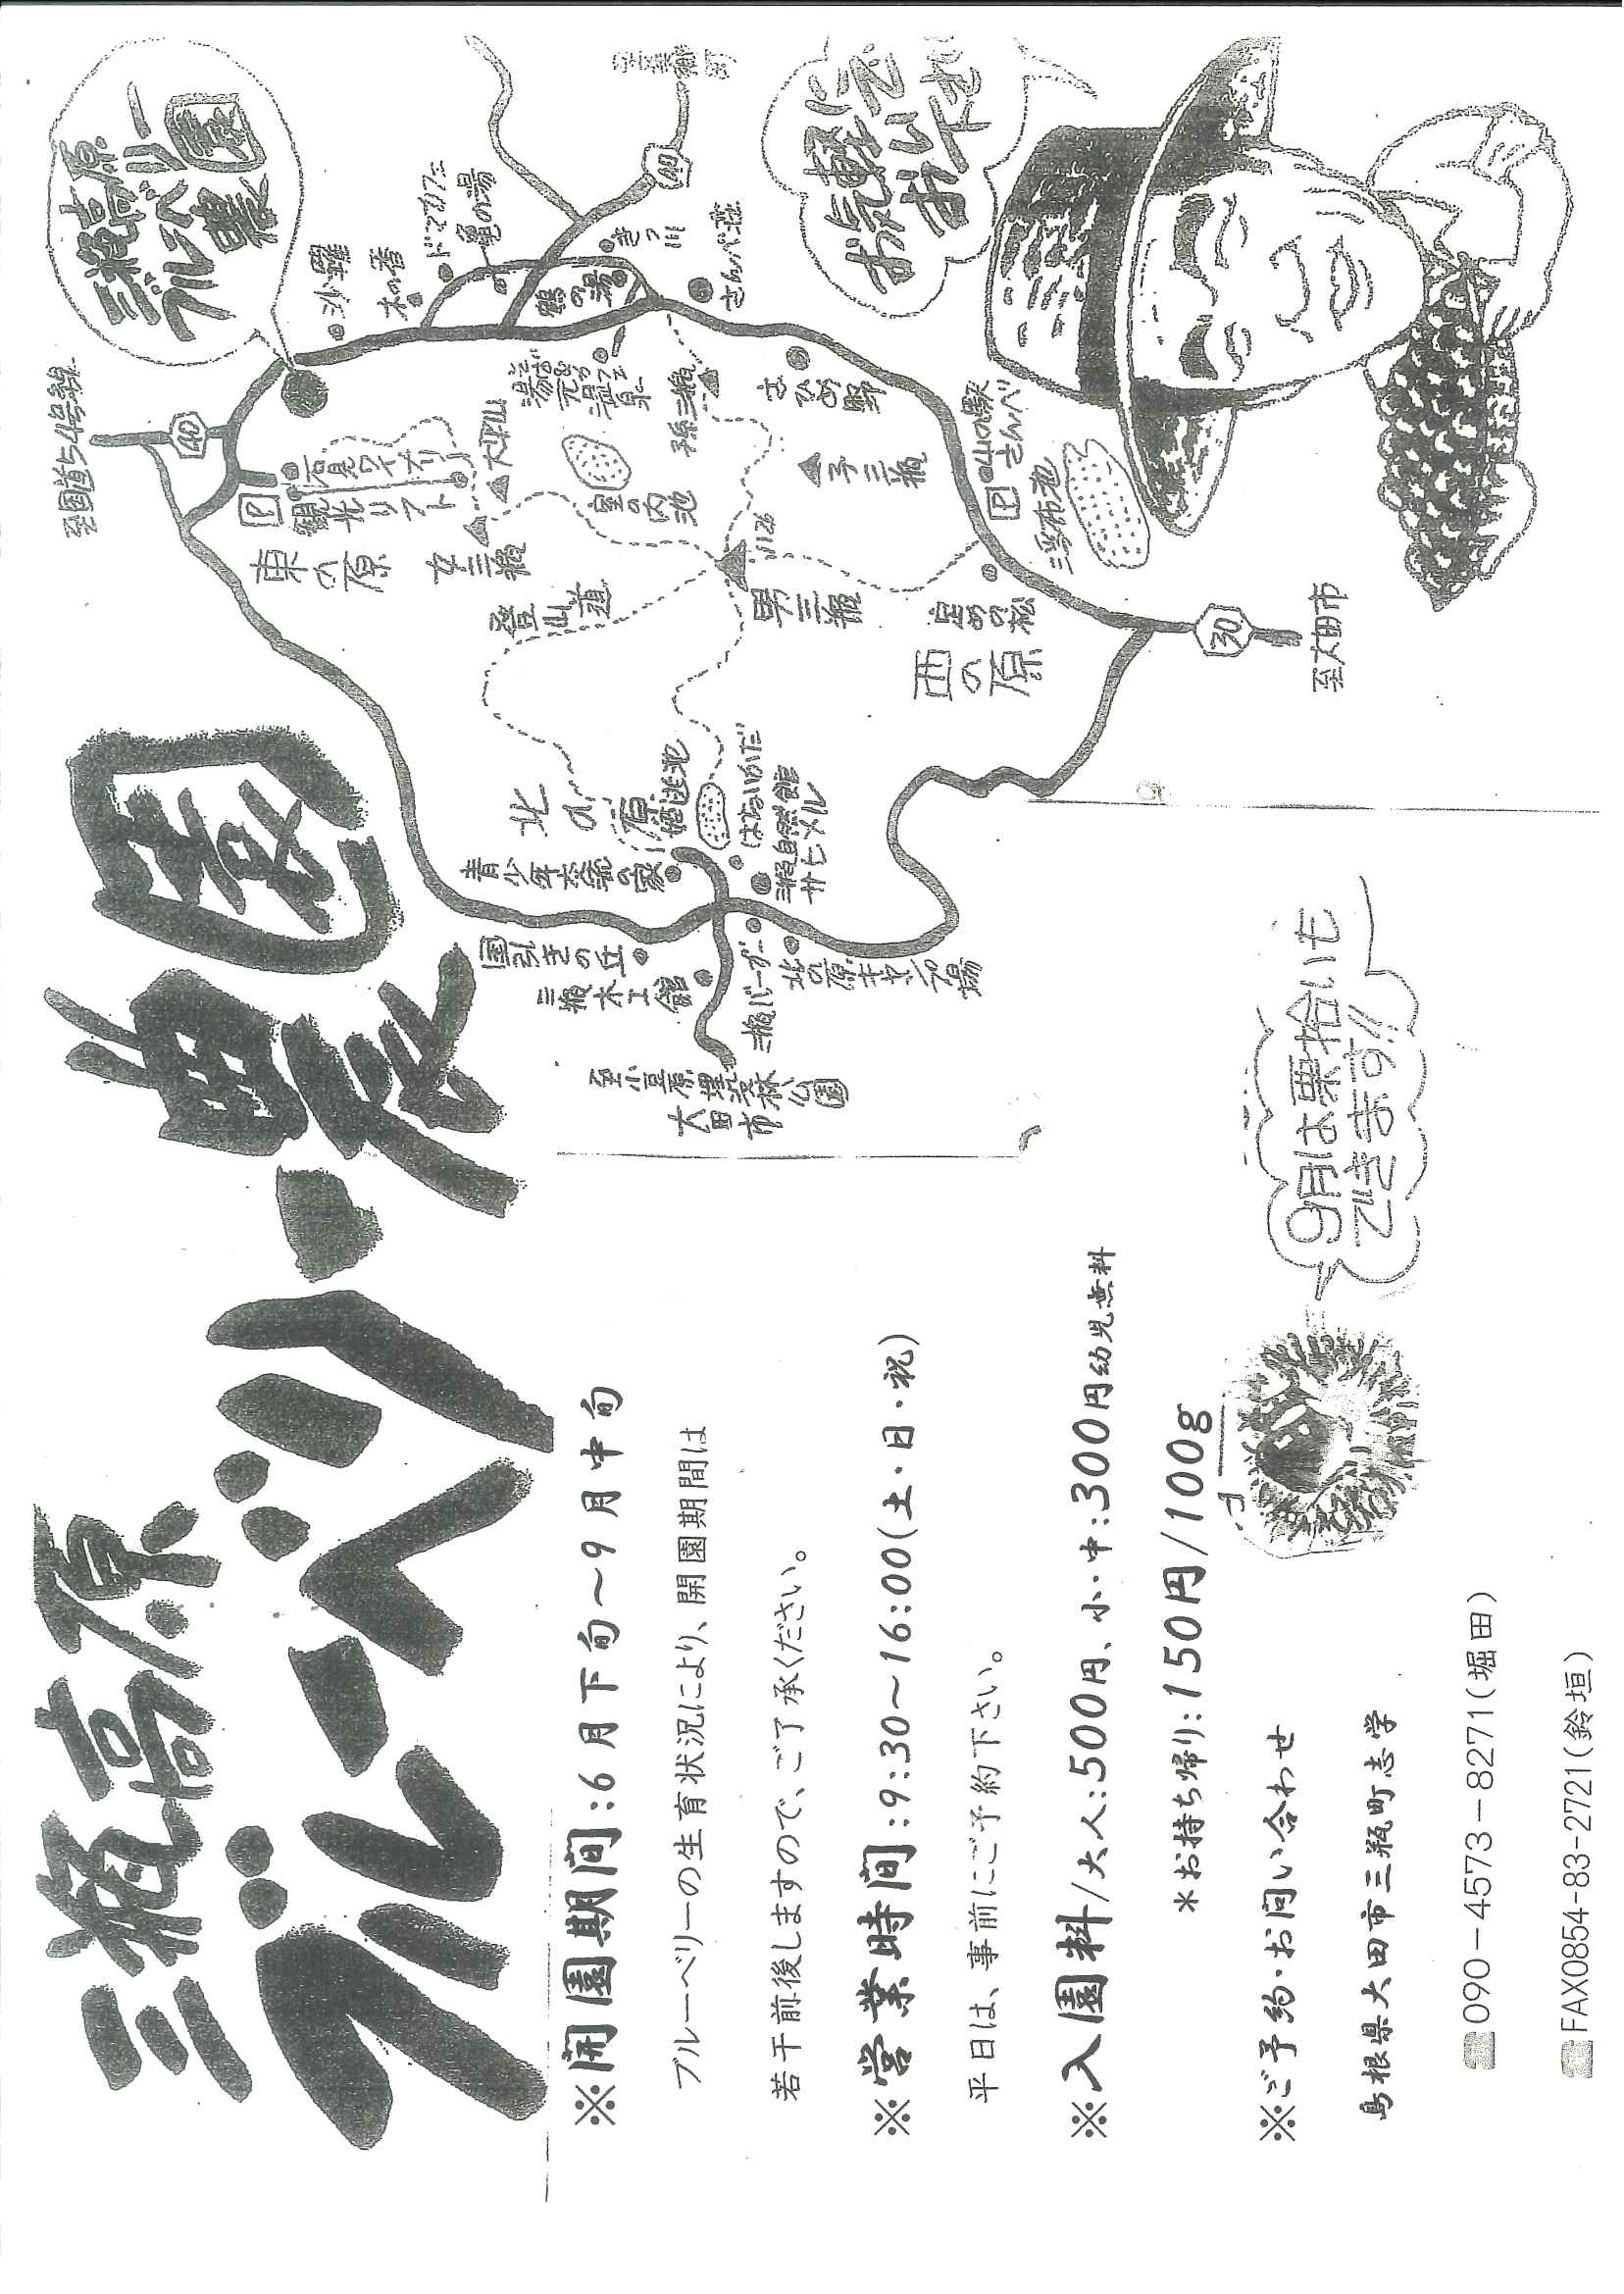 三瓶高原
ブルーベリー農園
※開園期間:6月下旬～9月中旬
ブルーベリーの生育状況により、開園期間は
若干前後しますので、ご了承ください。
※営業時間:9:30～16:00(土・日・祝)
平日は、事前にご予約下さい。
※入園料/大人:500円、小・中:300円幼児無料
*お持ち帰り:150円/100g
※ご予約・お問い合わせ
島根県大田市三瓶町志学
☎090-4573-8271(堀田)
☎FAX0854-83-2721(鈴垣)
9月は栗拾いも
できます!!
三瓶高原
ブルーベリー
農園
お気軽に
至国道54号線
40
沙羅
木の香
亀の湯
鶴の湯
きっ川
さんべ荘
40
P
観光リフト
石見ワイナリー
大平山
東の原
女三瓶
室の内池
孫三瓶
さひめ野
子三瓶
登山道
男三瓶
1126
P
山の駅
さんべ
三瓶
浮布池
定めの松
西の原
30
至大田市
北の原
姫逃池
はないかだ
三瓶自然館
サヒメル
青少年交流の家
国引きの丘
三瓶木工館
三瓶バーガー
北の原キャンプ場
至小豆原埋没林公園
大田市